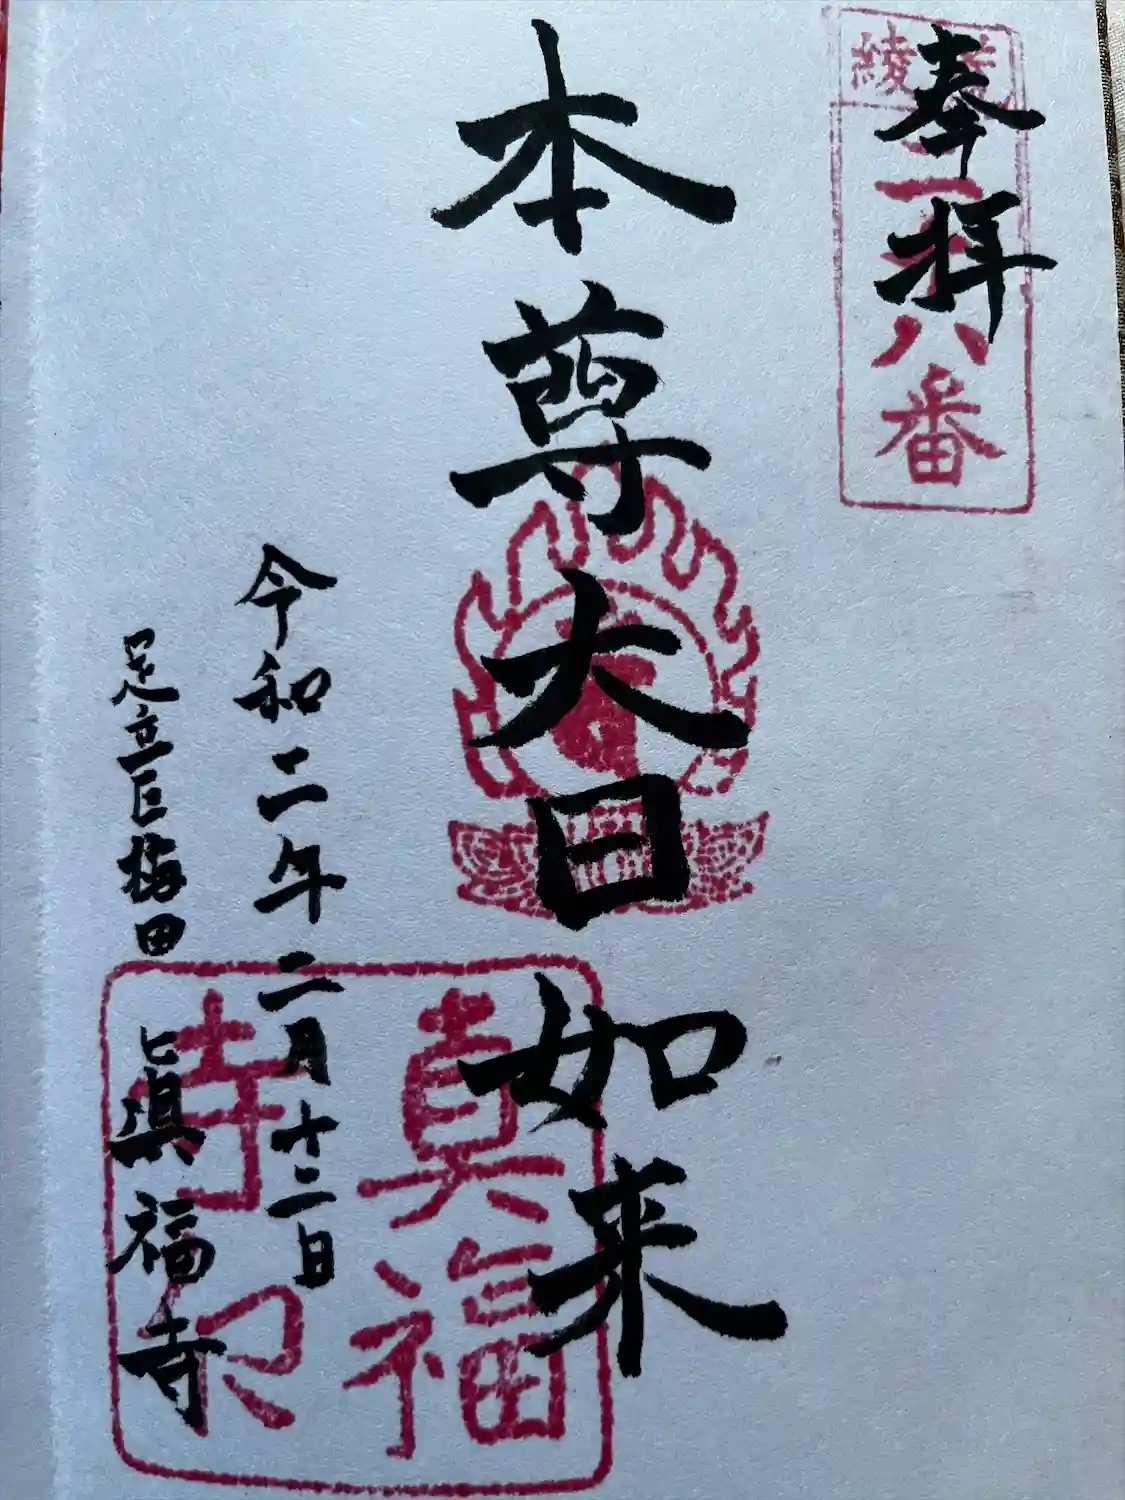 奉拝
二十八番
本尊大日如来
令和二年二月十二日
足立区梅田
眞福寺
眞福
寺印